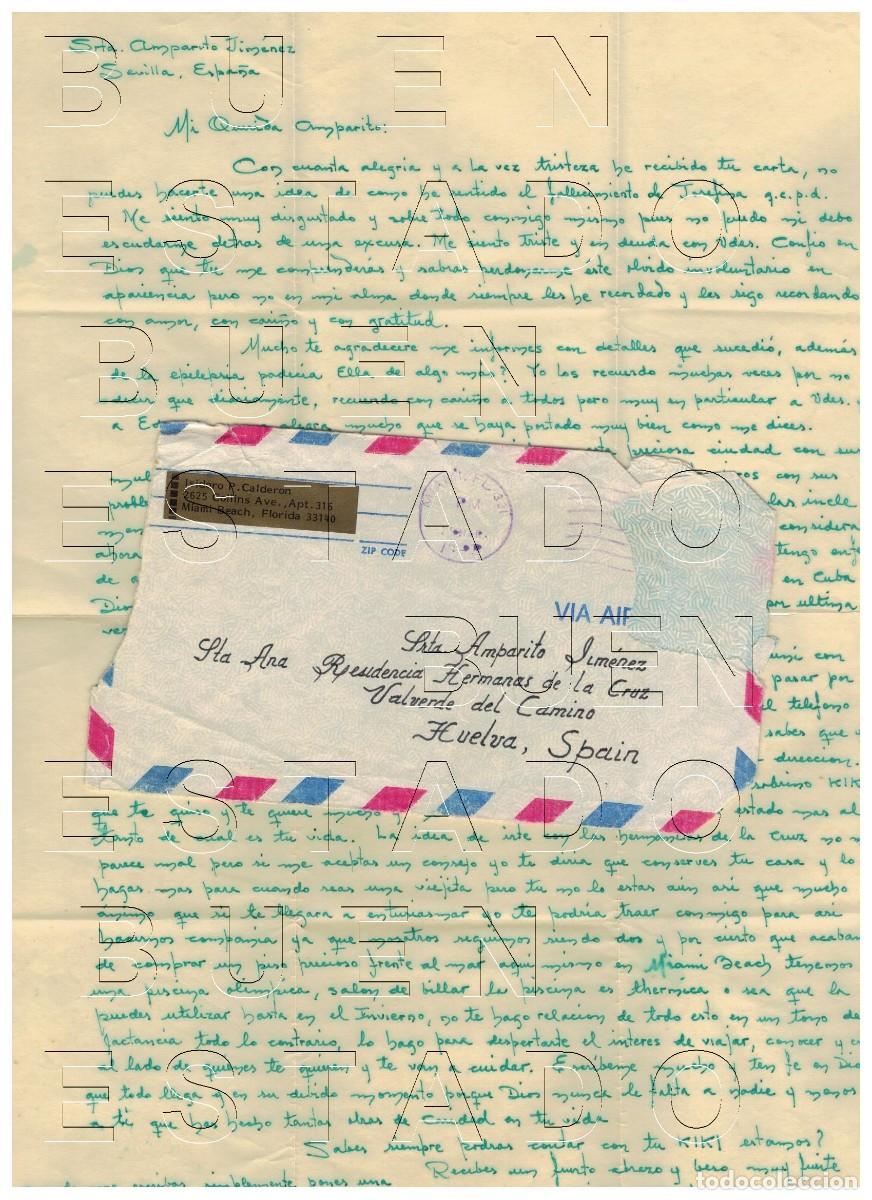 Srta. Amparito Jiménez
Sevilla, España
Mi Querida Amparito:
Con cuanta alegria y a la vez tristeza he recibido tu carta, no
puedes hacerte una idea de como he sentido el fallecimiento de Josefina q.e.p.d.
Me siento muy disgustado y sobre todo conmigo mismo pues no puedo ni debo
escudarme detras de una excusa. Me siento triste y en deuda con Vdes. Confio en
Dios que tu me comprenderás y sabras perdonarme éste olvido involuntario en
apariencia pero no en mi alma donde siempre les he recordado y les sigo recordando
con amor, con cariño y con gratitud.
Mucho te agradecere me informes con detalles que sucedió, además
de la epilepsia padecia Ella de algo mas? Yo los recuerdo muchas veces por no
decir que diariamente, recuerdo con cariño a todos pero muy en particular a Vdes. y
a mucho que se haya portado muy bien como me dices.
preciosa ciudad con sus
con sus
probl
las incle
considera
ahora tengo
de a en Cuba
Dios por ultima
ver
con
pasar por
el telefono
sabes que
direccion.
sobrino KIKI
que te quiso y te quiere mucho y estado mas al
tanto de cual es tu vida. La idea de irte con las hermanitas de la Cruz no me
parece mal pero si me aceptas un consejo yo te diria que conserves tu casa y lo
hagas mas para cuando seas una viejita pero tu no lo estas aún asi que mucho
animo que si te llegara a entusiasmar yo te podria traer conmigo para asi
hacernos compania ya que nosotros seguimos siendo dos y por cierto que acabamos
de comprar un piso precioso frente al mar aqui mismo en Miami Beach tenemos
una piscina olimpica, salon de billar la piscina es thermica o sea que la
puedes utilizar hasta en el Invierno, no te hago relacion de todo esto en un tono de
jactancia todo lo contrario, lo hago para despertarte el interes de viajar, conocer y
al lado de quienes te quieren y te van a cuidar. Escribeme mucho y ten fe en Dios
que todo llega en su debido momento porque Dios nunca le falta a nadie y menos
a ti que has hecho tantas obras de caridad en tu vida
Sabes siempre podras contar con tu KIKI estamos?
Recibes un fuerte abrazo y beso muy fuerte
escribas simplemente pones una
Isidoro P. Calderon
2625 Collins Ave., Apt. 316
Miami Beach, Florida 33140
ZIP CODE
MIAMI, FL 331
PM
VIA AIR
Srta Amparito Jiménez
Sta Ana Residencia Hermanas de la Cruz
Valverde del Camino
Huelva, Spain
BUEN
ESTADO
BUEN
ESTADO
BUEN
ESTADO
BUEN
ESTADO
todocoleccion